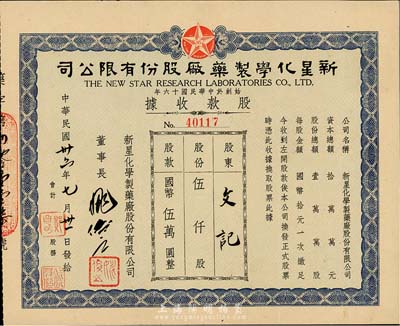 司公限有份股廠藥製學化星新
THE NEW STAR RESEARCH LABORATORIES CO., LTD.
年六十國民華中於創始
據收款股
No. 40117
公司名稱 新星化學製藥廠股份有限公司
資本總額 拾萬萬元
股份總額 壹萬萬股
每股金額 國幣拾元一次繳足
今收到左開股款俟本公司換發正式股票
時憑此收據換取股票此據
股東 文記
股份 伍仟股
股款 國幣伍萬圓整
新星化學製藥廠股份有限公司
董事長
會計 股務
中華民國卅六年七月卅一日發給